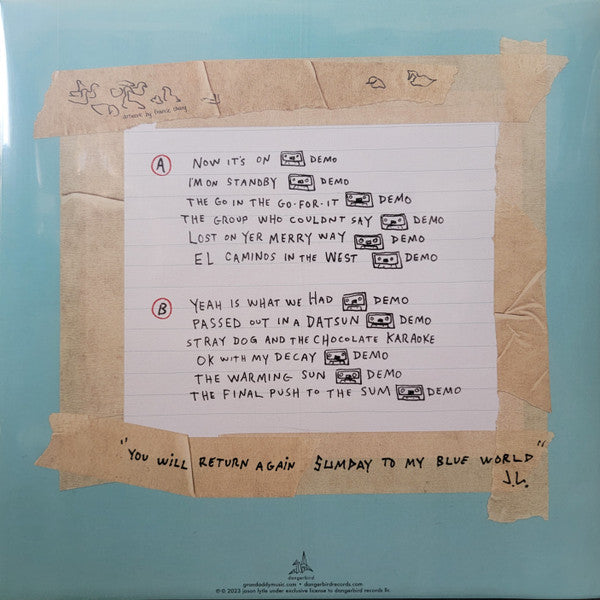 artwork by frances chang
A
NOW IT'S ON DEMO
I'M ON STANDBY DEMO
THE GO IN THE GO-FOR-IT DEMO
THE GROUP WHO COULDNT SAY DEMO
LOST ON YER MERRY WAY DEMO
EL CAMINOS IN THE WEST DEMO
B
YEAH IS WHAT WE HAD DEMO
PASSED OUT IN A DATSUN DEMO
STRAY DOG AND THE CHOCOLATE KARAOKE
OK WITH MY DECAY DEMO
THE WARMING SUN DEMO
THE FINAL PUSH TO THE SUM DEMO
"YOU WILL RETURN AGAIN SUMDAY TO MY BLUE WORLD"
J.L.
dangerbird
grandaddymusic.com • dangerbirdrecords.com
℗ © 2023 jason lytle under exclusive license to dangerbird records llc.